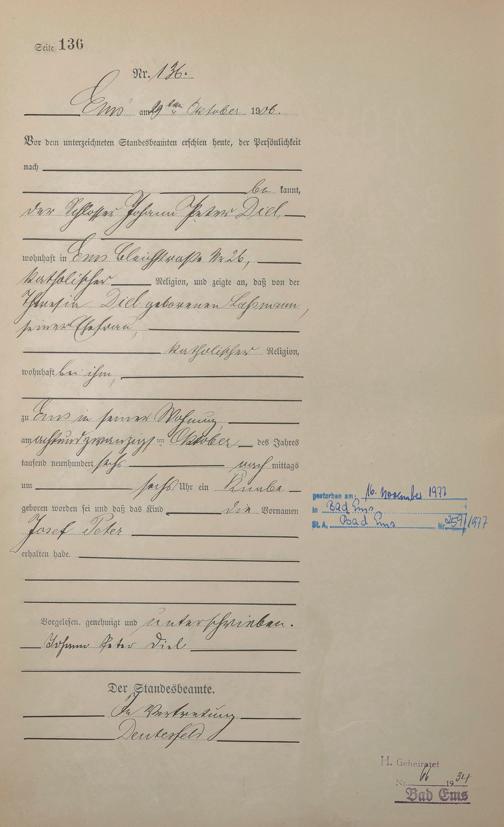 Seite 136
Nr. 136.
Ems am 29ten Oktober 1906.
Vor dem unterzeichneten Standesbeamten erschien heute, der Persönlichkeit
nach
be kannt,
der Schlosser Johann Peter Diel
wohnhaft in Ems Bleichstraße Nr 26,
katholischer Religion, und zeigte an, daß von der
Diel geborenen
seiner Ehefrau,
katholischer Religion,
wohnhaft bei ihm,
zu Ems in seiner Wohnung
am achtundzwanzigsten Oktober des Jahres
tausend neunhundert sechs nach mittags
um sechs Uhr ein Knabe
geboren worden sei und daß das Kind die Vornamen
Josef Peter
erhalten habe.
Vorgelesen, genehmigt und unterschrieben.
Johann Peter Diel
Der Standesbeamte.
In Vertretung
gestorben am: 16. November 1977
in Bad Ems
St. A. Bad Ems Nr. /1977
H. Geheiratet
Nr. 1934
Bad Ems